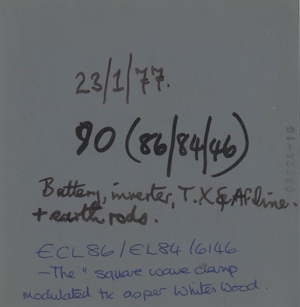 23/1/77.
90 (86/84/46)
Battery, inverter, T.X & AF line.
+ earth rods.
ECL86/EL84/6146
-The " square wave clamp
modulated tx as per Whites Wood.